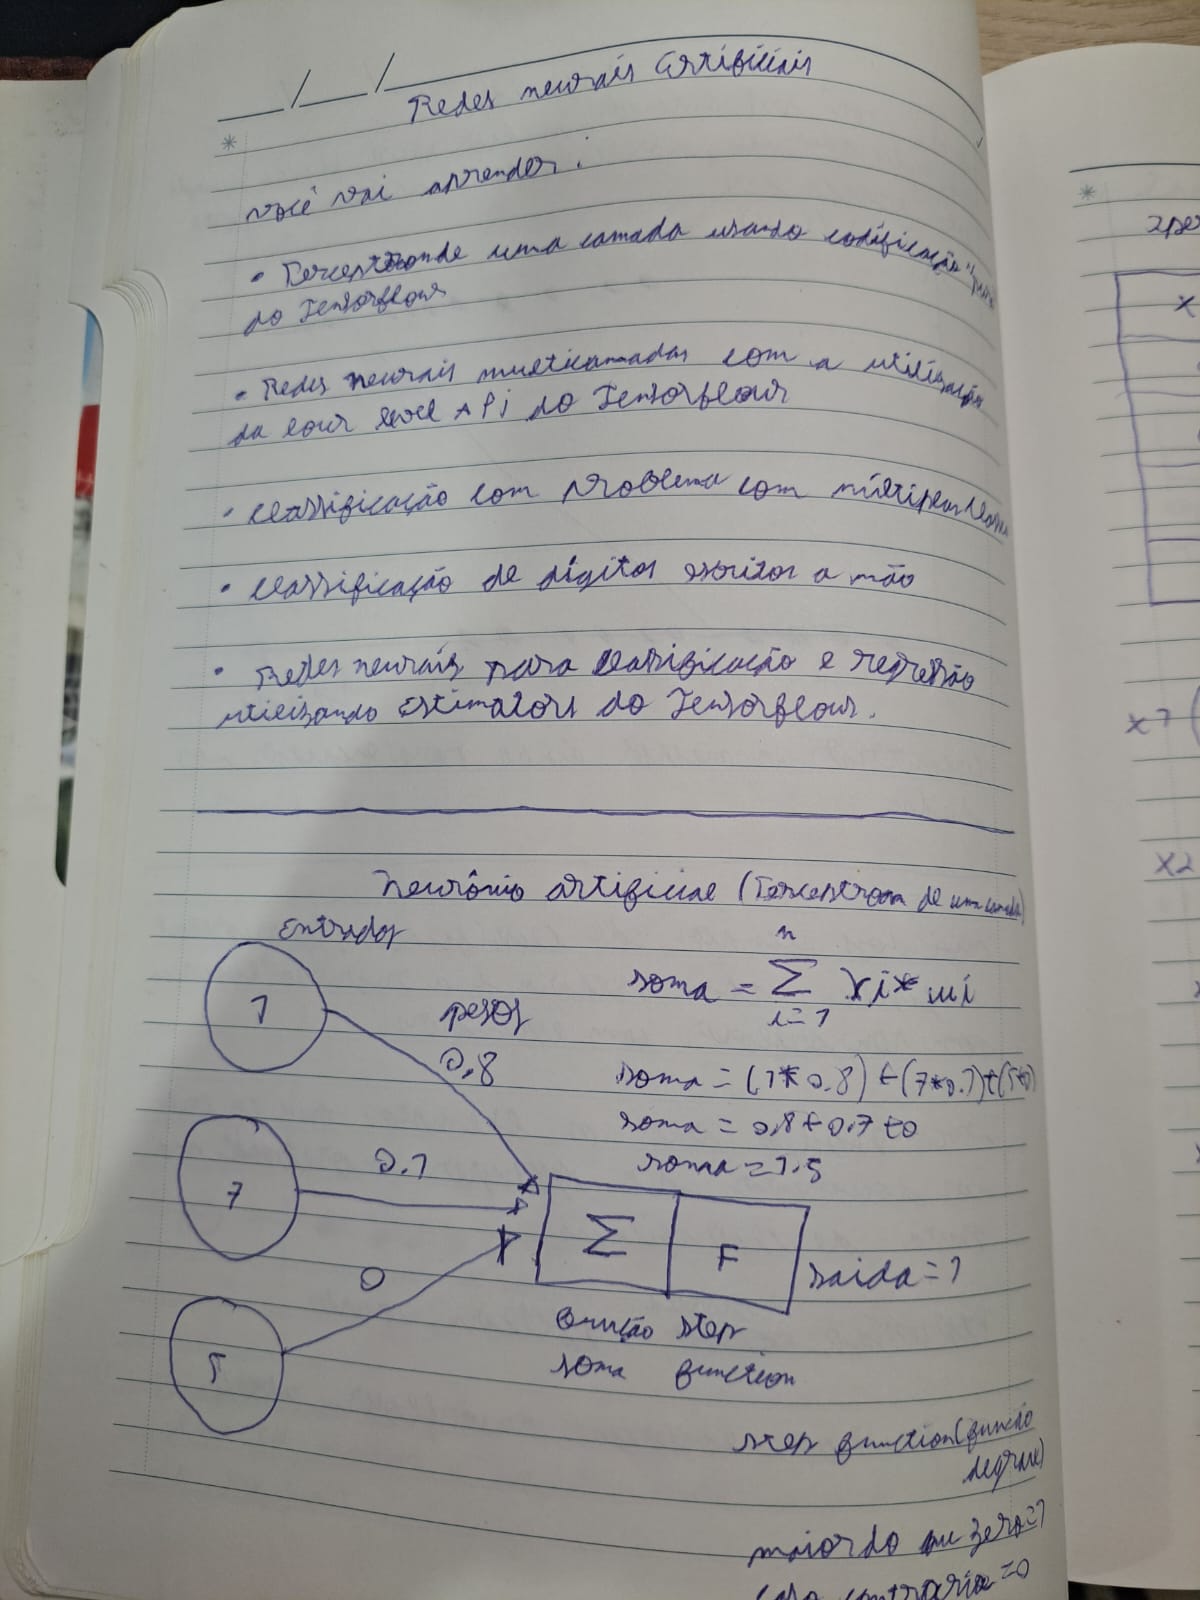 Redes neurais artificiais
você vai aprender:
• Perceptron de uma camada usando codificação "pura"
do Tensorflow
• Redes neurais multicamadas com a utilização
da low level API do Tensorflow
• classificação com problema com múltiplas classes
• classificação de dígitos escritos a mão
• Redes neurais para classificação e regressão
utilizando Estimators do Tensorflow.
neurônio artificial (Perceptron de uma camada)
Entradas
1
pesos
0,8
soma = Σ xi* wi
n
i=1
soma = (1*0.8) + (7*0.1) + (5*0)
soma = 0,8+0.7+0
soma = 1.5
7
0.1
Σ
F
saida = 1
0
5
função step
soma function
step function (função
degrau)
maior do que zero = 1
caso contrario = 0
*
x
x1
x2